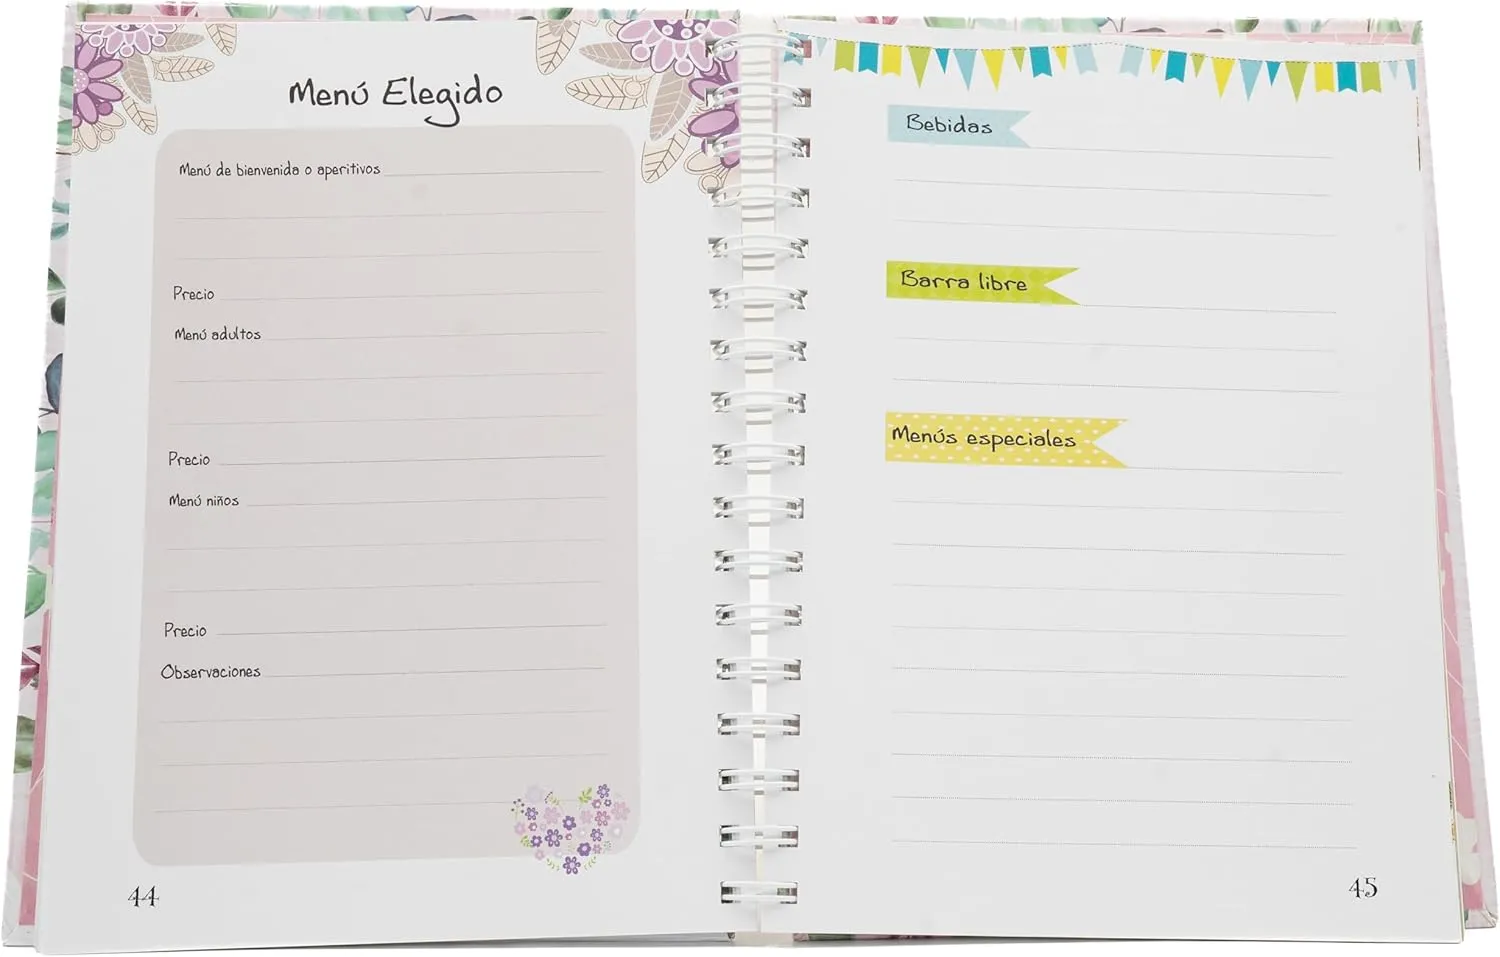 Menú Elegido
Menú de bienvenida o aperitivos
Precio
Menú adultos
Precio
Menú niños
Precio
Observaciones
44
Bebidas
Barra libre
Menús especiales
45